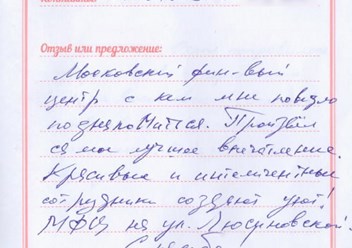 Отзыв или предложение:
Московский фин-вый
центр с кем мне повезло
познакомиться. Произвёл
самое лучшее впечатление.
Красивые и интеллигентные
сотрудники создают уют!
МФЦ на ул. Люсиновской.